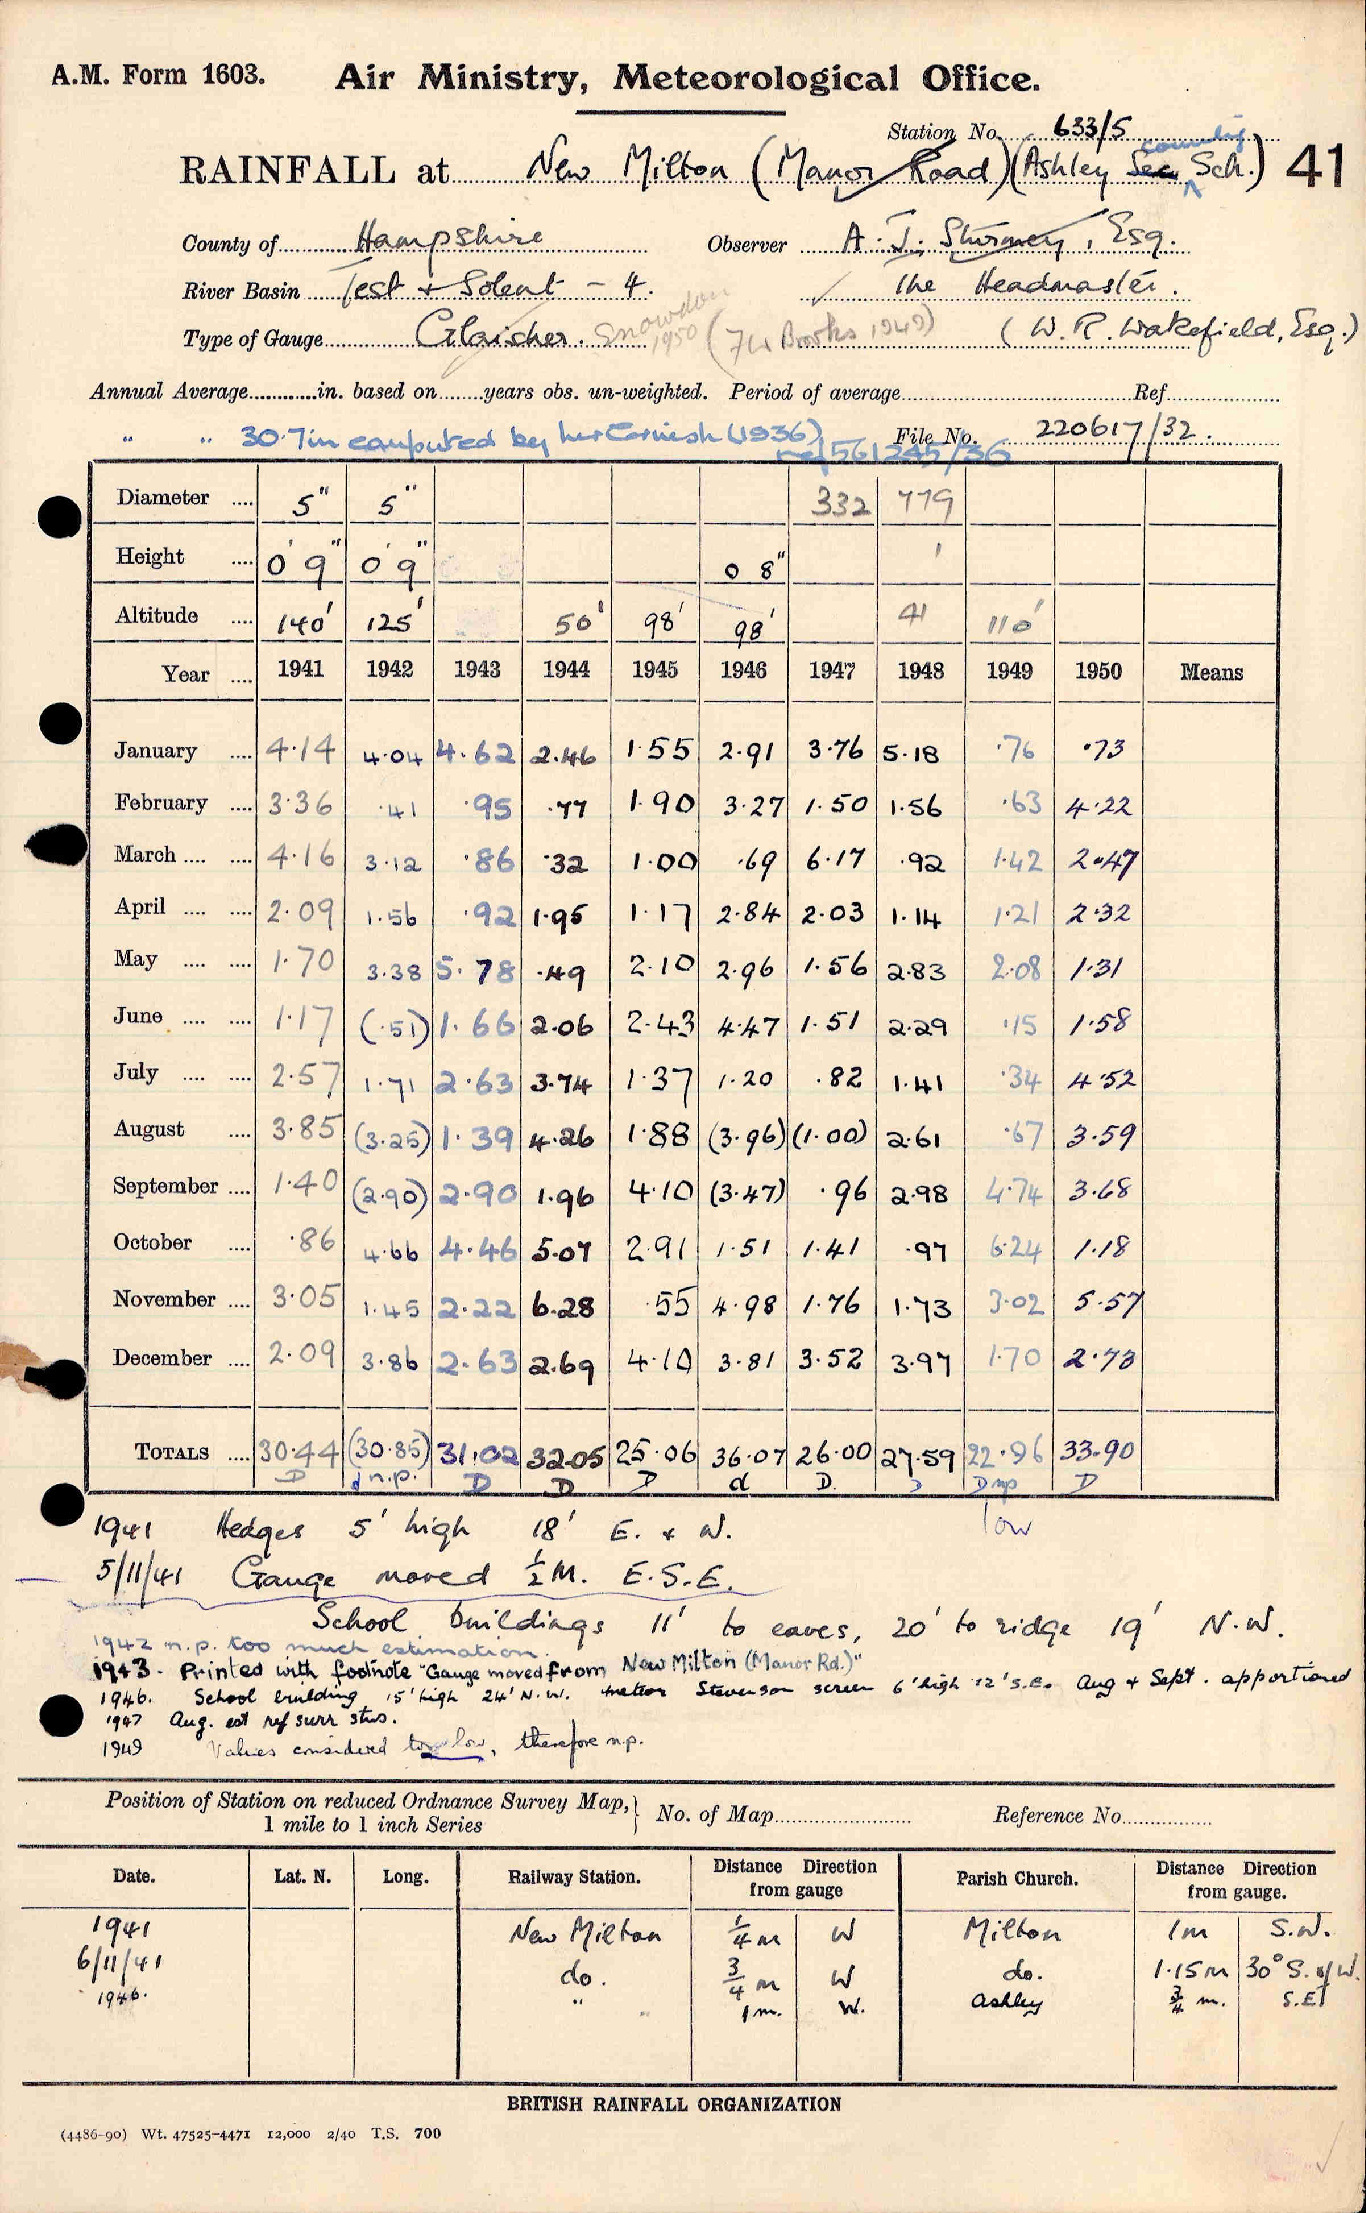 A.M. Form 1603. Air Ministry, Meteorological Office.
Station No. 633/5
RAINFALL at New Milton (Manor Road) (Ashley Sec. county Sch.) 41
County of Hampshire Observer A. J. Sturmey, Esq.
River Basin Test & Solent - 4. The Headmaster.
Type of Gauge Glaisher. Snowdon 1950 ( Brooks 1949) (W. R. Wakefield, Esq.)
Annual Average............in. based on........years obs. un-weighted. Period of average Ref
" " 30.7in computed by (1936) File No. 220617/32.
ref 561245/36
Diameter 5" 5" 332 779
Height 0' 9" 0' 9" 0 8" '
Altitude 140' 125' 50' 98' 98' 41 110'
Year 1941 1942 1943 1944 1945 1946 1947 1948 1949 1950 Means
January 4.14 4.04 4.62 2.46 1.55 2.91 3.76 5.18 .76 .73
February 3.36 .41 .95 .77 1.90 3.27 1.50 1.56 .63 4.22
March 4.16 3.12 .86 .32 1.00 .69 6.17 .92 1.42 2.47
April 2.09 1.56 .92 1.95 1.17 2.84 2.03 1.14 1.21 2.32
May 1.70 3.38 5.78 .49 2.10 2.96 1.56 2.83 2.08 1.31
June 1.17 (.51) 1.66 2.06 2.43 4.47 1.51 2.29 .15 1.58
July 2.57 1.71 2.63 3.74 1.37 1.20 .82 1.41 .34 4.52
August 3.85 (3.25) 1.39 4.26 1.88 (3.96) (1.00) 2.61 .67 3.59
September 1.40 (2.90) 2.90 1.96 4.10 (3.47) .96 2.98 4.74 3.68
October .86 4.66 4.46 5.07 2.91 1.51 1.41 .97 6.24 1.18
November 3.05 1.45 2.22 6.28 .55 4.98 1.76 1.73 3.02 5.57
December 2.09 3.86 2.63 2.69 4.10 3.81 3.52 3.97 1.70 2.73
TOTALS 30.44 (30.85) 31.02 32.05 25.06 36.07 26.00 27.59 22.96 33.90
D d n.p. D D D d D. D D np D
low
1941 Hedges 5' high 18' E. & W.
5/11/41 Gauge moved ½ M. E.S.E.
School buildings 11' to eaves, 20' to ridge 19' N.W.
1942 n.p. too much estimation.
1943. Printed with footnote "Gauge moved from New Milton (Manor Rd.)"
1946. School building 15' high 24' N.W. Stevenson screen 6' high 12' S.E. Aug & Sept. apportioned
1947 Aug. est ref surr stns.
1949 Values considered too low, therefore n.p.
Position of Station on reduced Ordnance Survey Map, 1 mile to 1 inch Series } No. of Map Reference No.
Date. Lat. N. Long. Railway Station. Distance Direction from gauge Parish Church. Distance Direction from gauge.
1941 New Milton ¼ m W Milton 1m S.W.
6/11/41 do. ¾ m W do. 1.15m 30° S. of W.
1946. " " 1 m. W. Ashley ¾ m. S.E
BRITISH RAINFALL ORGANIZATION
(4486-90) Wt. 47525-4471 12,000 2/40 T.S. 700